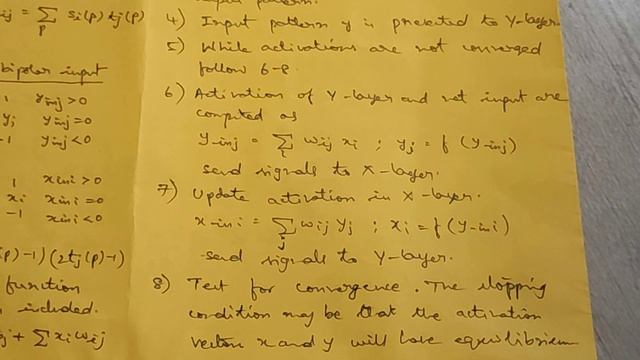 ij = Σ si(p) tj(p)
p
bipolar input
1 yinj > 0
yj yinj = 0
-1 yinj < 0
1 xini > 0
xi xini = 0
-1 xini < 0
(p)-1)(2tj(p)-1)
function
included.
j + Σ xi wij
input pattern.
4) Input pattern y is presented to Y-layer.
5) While activations are not converged
follow 6-8.
6) Activation of Y-layer and net input are
computed as
y-inj = Σ wij xi ; yj = f (y-inj)
i
send signals to X-layer.
7) Update activation in X-layer.
x-ini = Σ wij yj ; xi = f(x-ini)
j
send signals to Y-layer.
8) Test for convergence. The stopping
condition may be that the activation
vectors x and y will have equilibrium